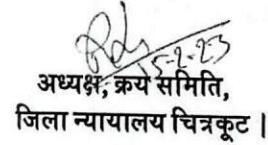 15-2-23
अध्यक्ष, क्रय समिति,
जिला न्यायालय चित्रकूट।